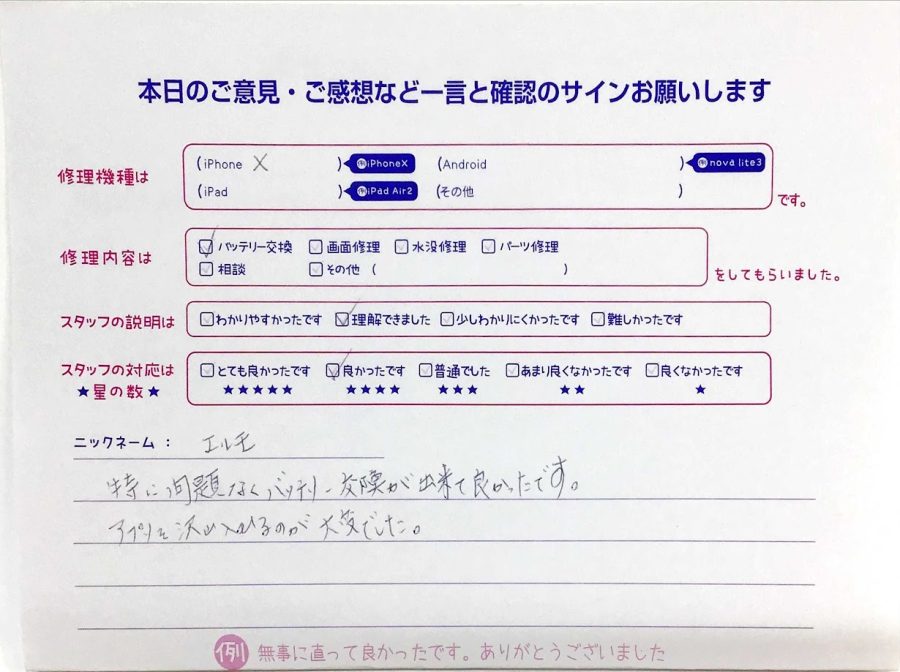 本日のご意見・ご感想など一言と確認のサインお願いします
修理機種は (iPhone X ) 例iPhoneX (Android ) 例nova lite3
(iPad ) 例iPad Air2 (その他 ) です。
修理内容は バッテリー交換 画面修理 水没修理 パーツ修理
相談 その他 ( ) をしてもらいました。
スタッフの説明は わかりやすかったです 理解できました 少しわかりにくかったです 難しかったです
スタッフの対応は とても良かったです 良かったです 普通でした あまり良くなかったです 良くなかったです
★星の数★ ★★★★★ ★★★★ ★★★ ★★ ★
ニックネーム : エルモ
特に問題なくバッテリー交換が出来て良かったです。
アプリを沢山入れるのが大変でした。
例 無事に直って良かったです。ありがとうございました